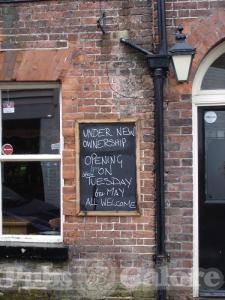 UNDER NEW
OWNERSHIP
OPENING
ON
TUESDAY
6th MAY
ALL WELCOME
Pubs Galore